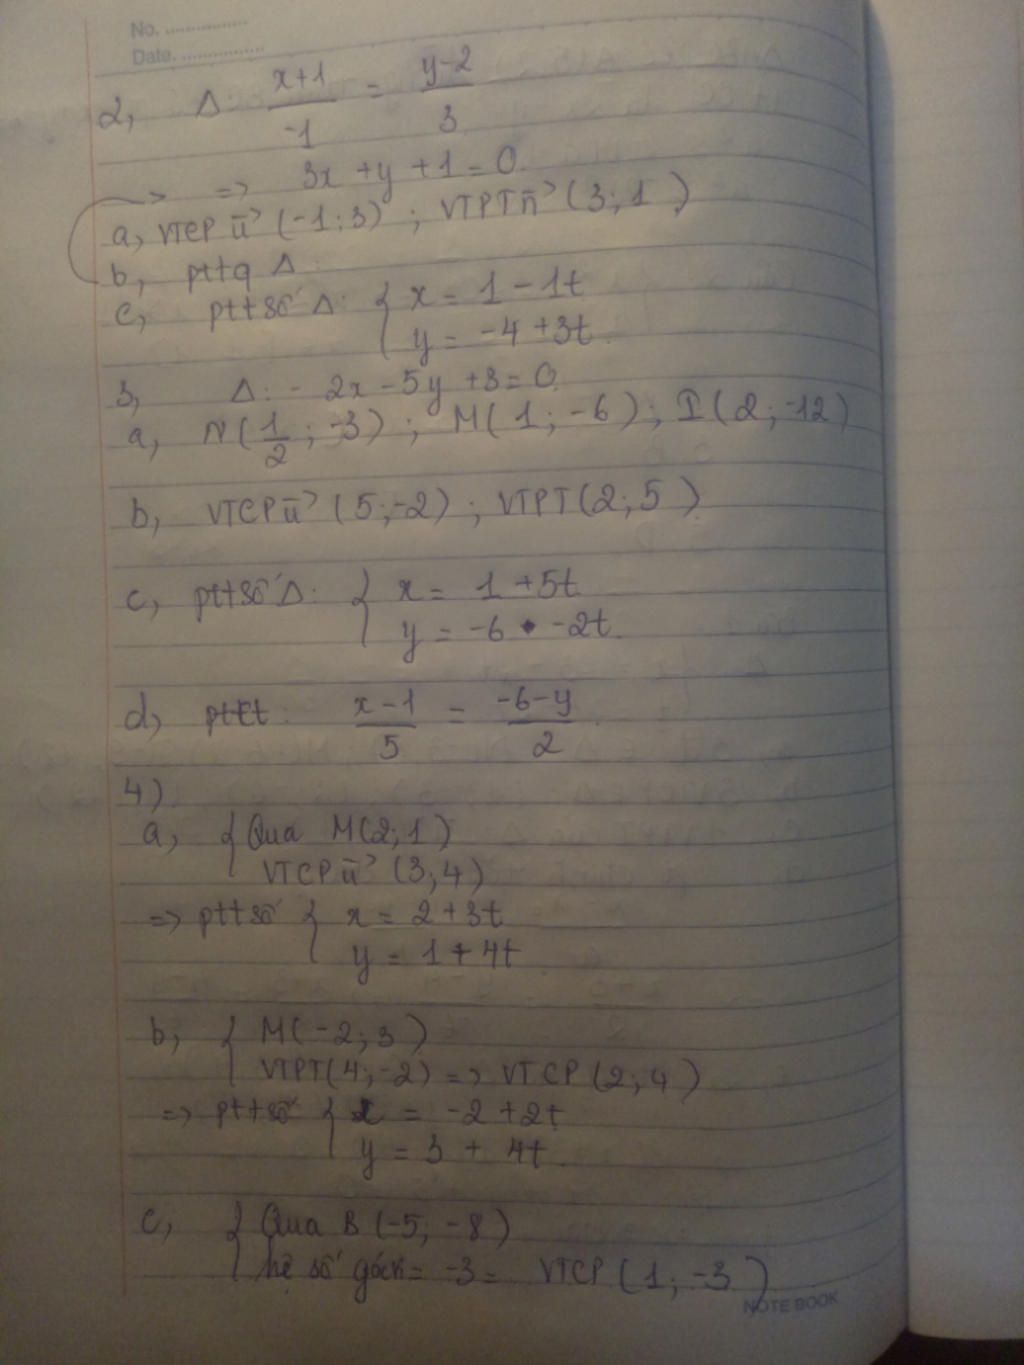 No. ................
Date. ................
2, Δ: (x+1)/-1 = (y-2)/3
=> 3x + y + 1 = 0.
a, VTCP u→ (-1; 3) ; VTPT n→ (3; 1)
b, pttq Δ
c, ptt số Δ: { x = 1 - 1t
y = -4 + 3t
3, Δ: - 2x - 5y + 3 = 0
a, N(1/2; -3) ; M(1; -6) ; I(2; -12)
b, VTCP u→ (5; -2) ; VTPT (2; 5)
c, ptt số Δ: { x = 1 + 5t
y = -6 -2t.
d, ptct: (x-1)/5 = (-6-y)/2
4)
a, { Qua M(2; 1)
VTCP u→ (3; 4)
=> ptt số { x = 2 + 3t
y = 1 + 4t
b, { M(-2; 3)
VTPT(4; -2) => VTCP (2; 4)
=> ptt số { x = -2 + 2t
y = 3 + 4t
c, { Qua B (-5; -8)
hệ số góc k = -3 = VTCP (1; -3)
NOTE BOOK